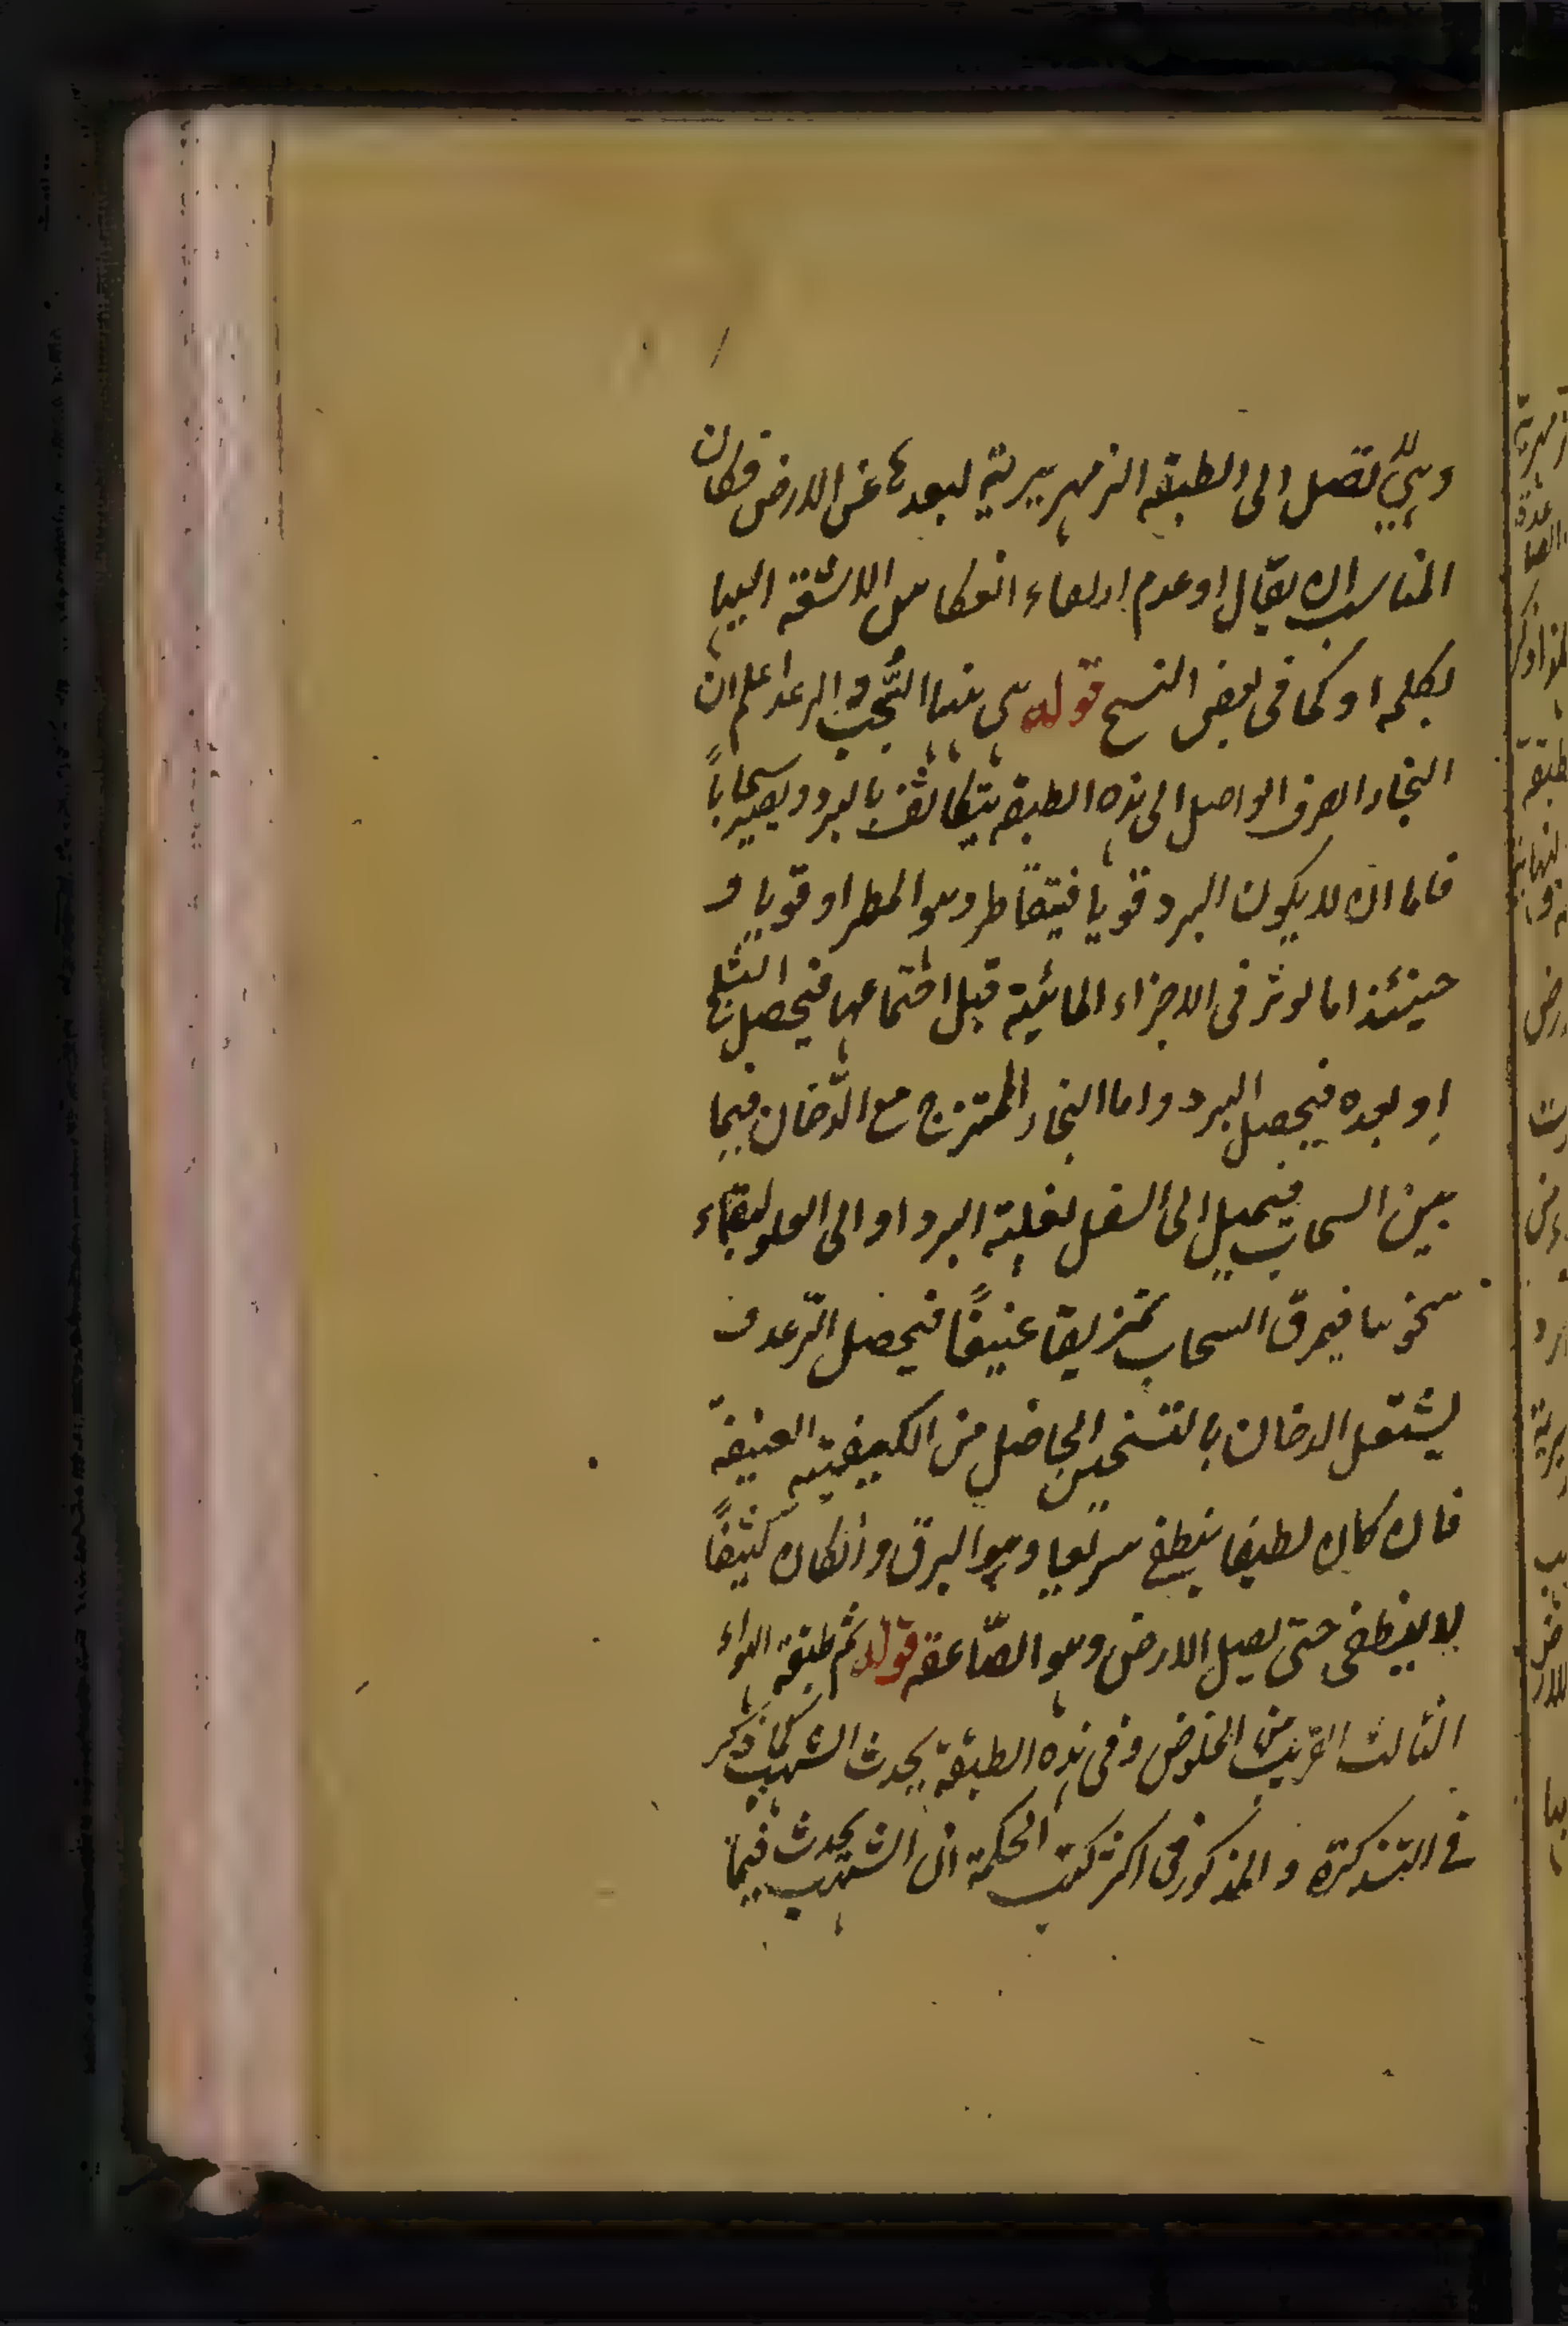 وهي لا تصل الى الطبقة الزمهريرية لبعدها عن الارض فكان
المناسب ان يقال او عدم ارتقاء انعكاس الاشعة اليها
بكلمة او كما فى بعض النسخ قوله هى منشأ السُّحب و الرعد اعلم ان
البخار الصرف الواصل الى هذه الطبقة يتكاثف بالبرد و يصير سحاباً
فاما ان لا يكون البرد قويا فيتقاطر وهو المطر او قويا و
حينئذ اما لوثر فى الاجزاء المائية قبل اجتماعها فيحصل الثلج
او بعده فيحصل البرد و اما البخار الممتزج مع الدّخان فيما
بين السحاب فيميل الى السفل لغلبة البرد او الى العلو لبقاء
سخونتها فيمزق السحاب تمزيقا عنيفًا فيحصل الرّعد و
يشتعل الدخان بالتسخين الحاصل من الكيفية العنيفة
فان كان لطيفا ينطفى سريعا وهو البرق وانكان كثيفًا
لا ينطفى حتى يصل الارض وهو الصّاعقة قوله ثم طبقة الهواء
الثالث القريب من الخلوض وفى هذه الطبقة يحدث الشهب كما ذكر
فى التذكرة و المذكور فى اكثر كتب الحكمة ان الشهب يحدث فيما